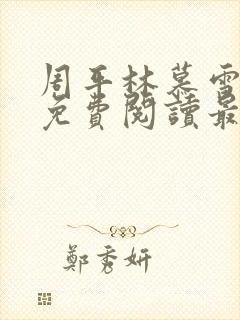 周平林慕雪
免費閱讀最
鄭秀妍